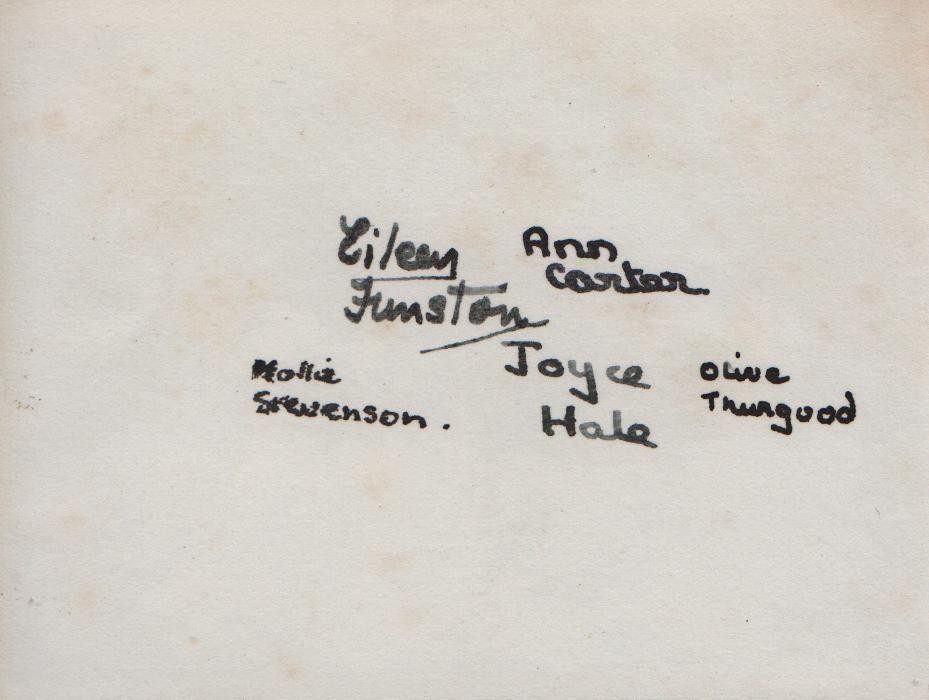 Eileen
Funston
Ann
Carter.
Mollie
Stevenson.
Joyce
Hale
Olive
Thurgood